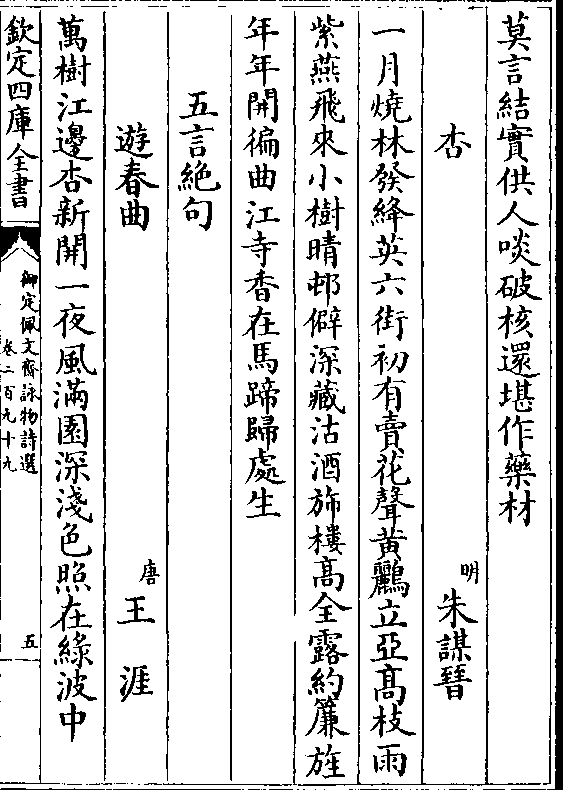 莫言結實供人啖破核還堪作藥材
杏
明 朱謀㙔
一月燒林發絳英六街初有賣花聲黄鸝立亞髙枝雨
紫燕飛來小樹晴邨僻深藏沽酒斾樓髙全露約簾旌
年年開徧曲江寺香在馬蹄歸處生
五言絶句
遊春曲
唐 王涯
萬樹江邊杏新開一夜風滿園深淺色照在綠波中
欽定四庫全書
御定佩文齋詠物詩選
卷二百九十九
五